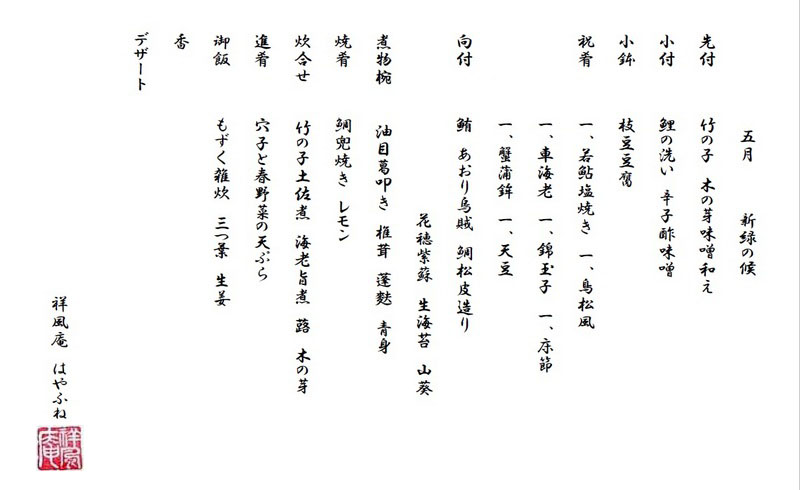 五月 新緑の候
先付 竹の子 木の芽味噌和え
小付 鯉の洗い 辛子酢味噌
小鉢 枝豆豆腐
祝肴 一、若鮎塩焼き 一、鳥松風
一、車海老 一、錦玉子 一、床節
一、蟹蒲鉾 一、天豆
向付 鮪 あおり烏賊 鯛松皮造り
花穂紫蘇 生海苔 山葵
煮物椀 油目葛叩き 椎茸 蓬麩 青身
焼肴 鯛兜焼き レモン
炊合せ 竹の子土佐煮 海老旨煮 蕗 木の芽
進肴 穴子と春野菜の天ぷら
御飯 もずく雑炊 三つ葉 生姜
香
デザート
祥風庵 はやふね
祥風庵